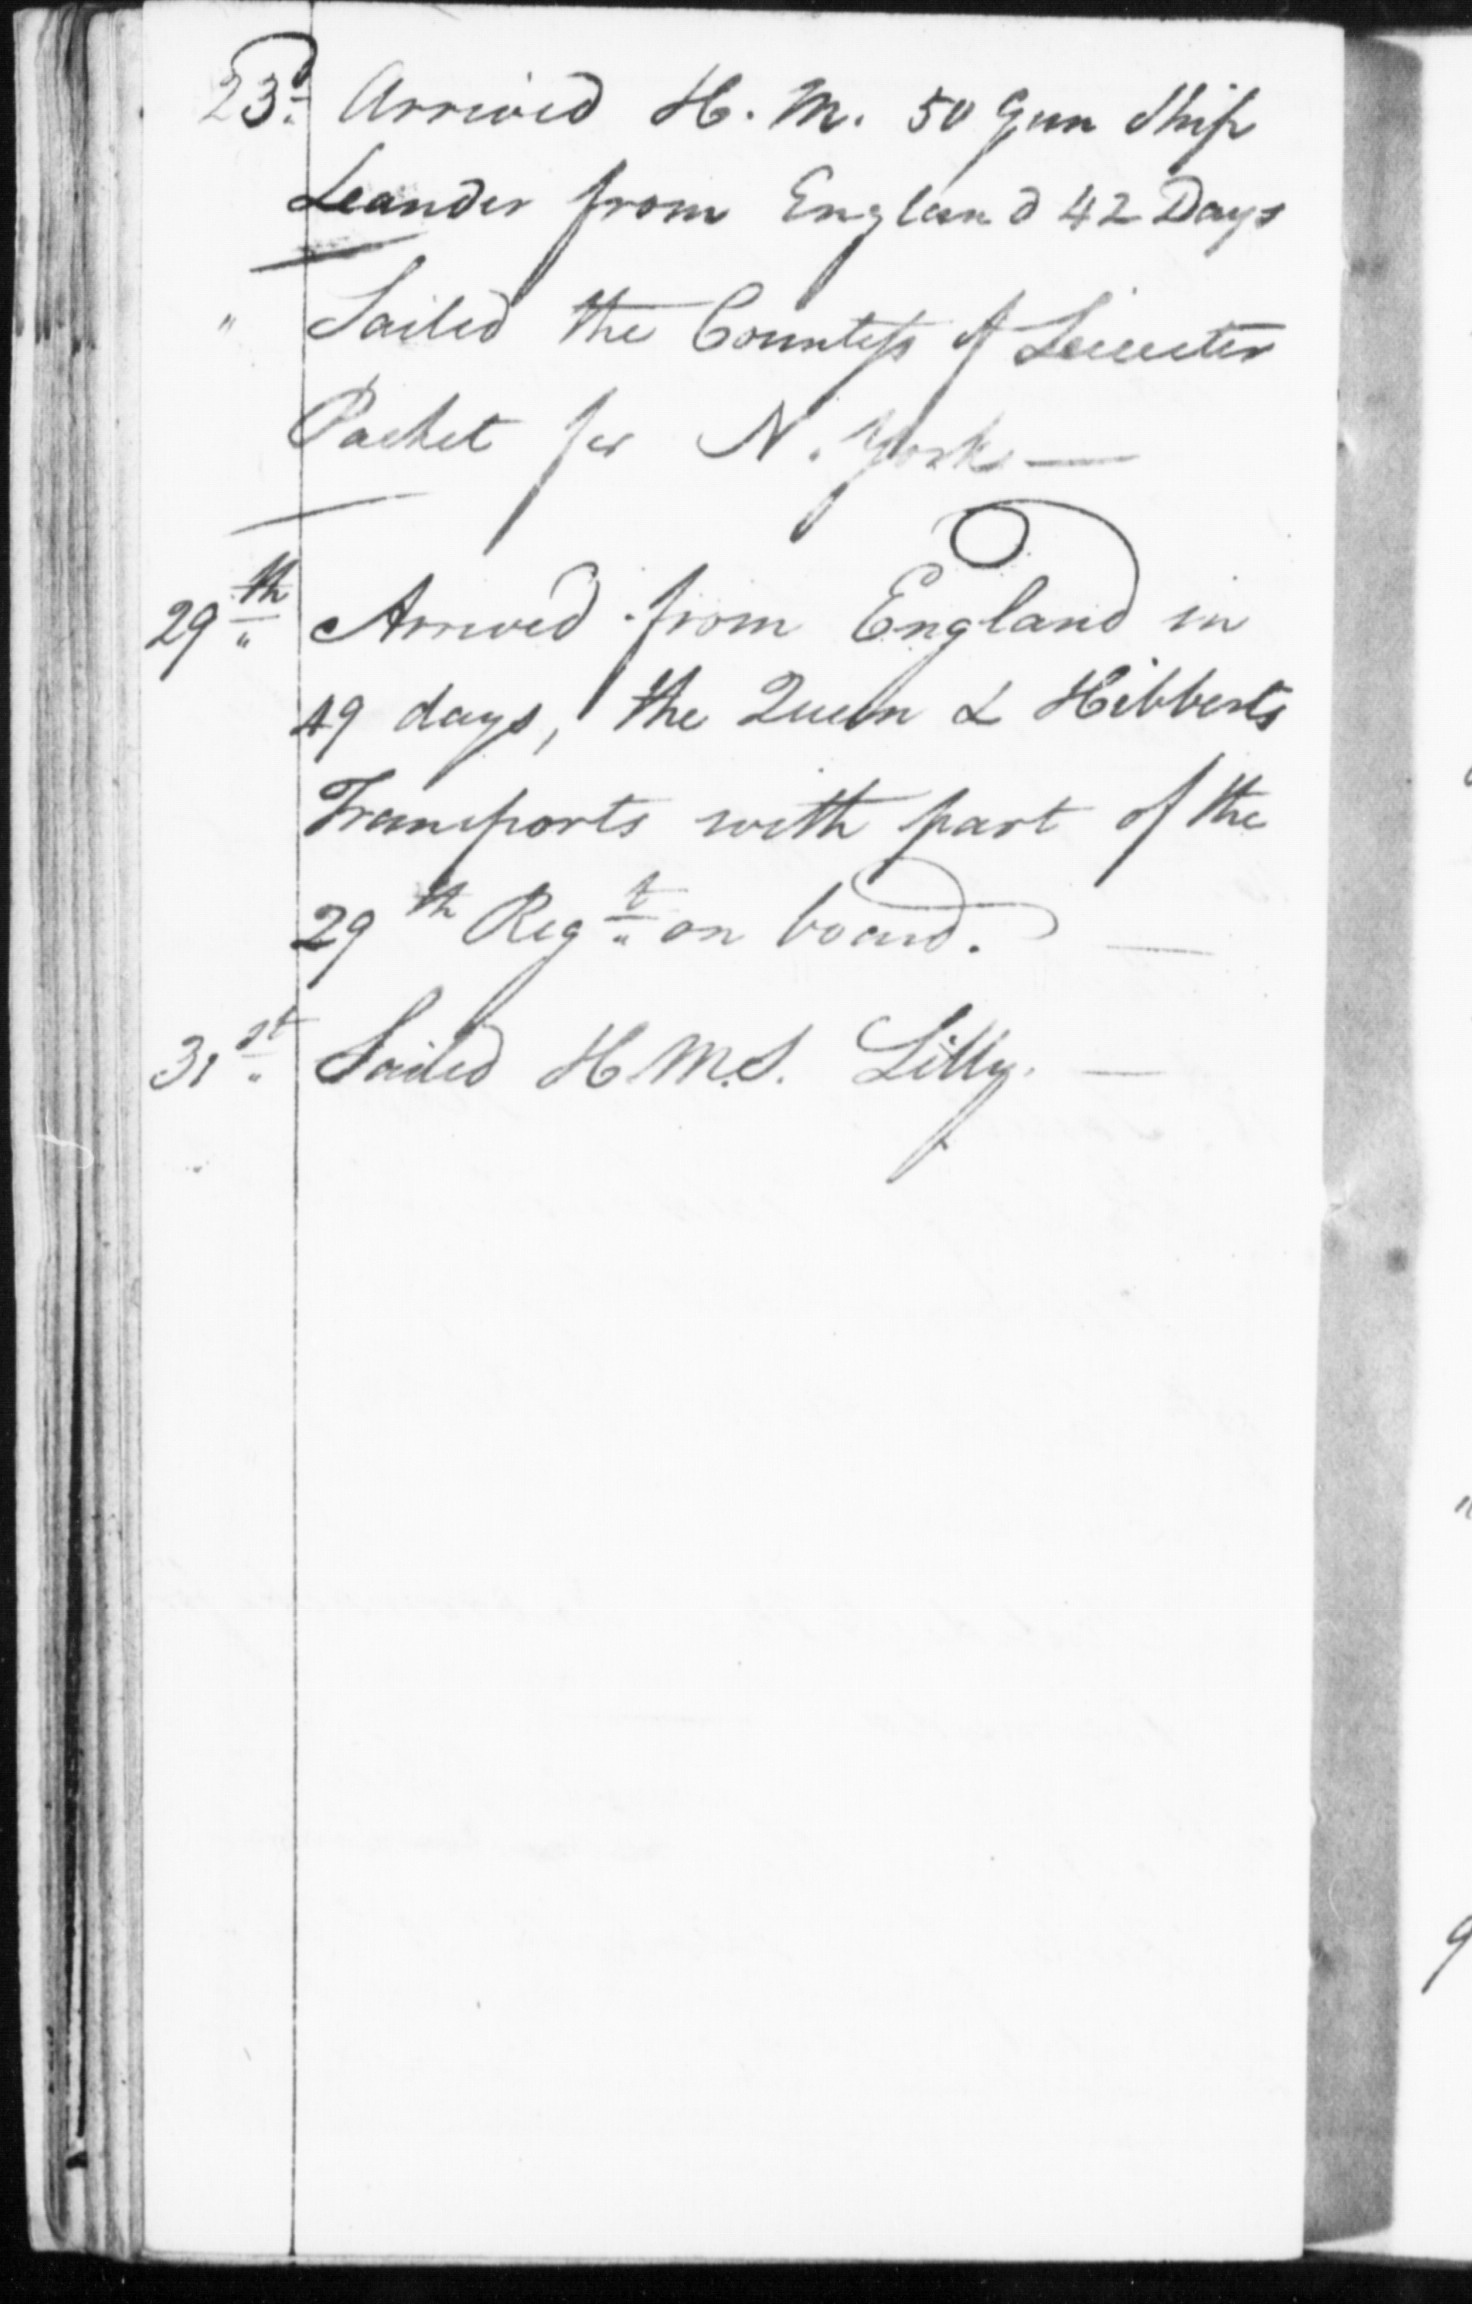 23d. Arrived H. M. 50 Gun Ship
Leander from England 42 Days
" Sailed the Countess of Leicester
Packet for N. York —
29th Arrived from England in
49 days, the Queen & Hibberts
Transports with part of the
29th Regt on board. —
31st Sailed H M.S. Lilly. —